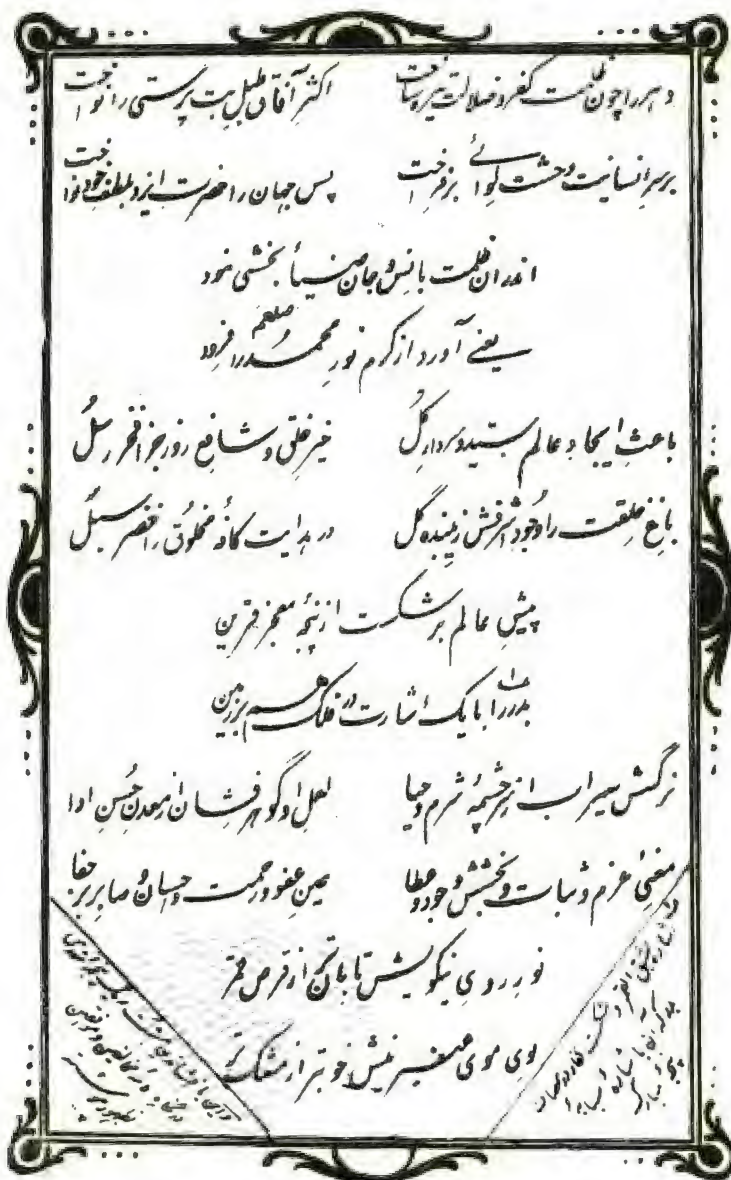 دهر را چون ظلمت کفر و ضلالت تیره ساخت    اکثرِ آفاق طبلِ بت پرستی را نواخت
بر سرِ انسانیت وحشت لوائے بر فراخت    پس جهان را حضرتِ ایزد بلطفِ خود نواخت
اندران ظلمت بانس و جان ضیأ بخشی نمود
یعنے آورد از کرم نورِ محمد صلعم را فرود
باعثِ ایجاد عالم سید و سردارِ کُل    خیرِ خلق و شافعِ روزِ جزا فخرِ رسُل
باغِ خلقت را وجودِ اشرفش زیبنده گل    در هدایت کافهٔ مخلوق را خضرِ سبُل
پیشِ عالم بر شکست از پنجهٔ معجز قرین
بدر را با یک اشارت در فلک هم بر زمین
نرگسش سیراب از سرچشمهٔ شرم و حیا    لعلِ او گوهر فشان از معدنِ حُسنِ ادا
معنیٔ عزم و ثبات و بخشش و جود و عطا    عینِ عفو و رحمت و احسان و صابر بر جفا
نورِ رویِ نیکویش تابان تر از قرصِ قمر
بوی موی عنبرینش خوبتر از مشکِ تر